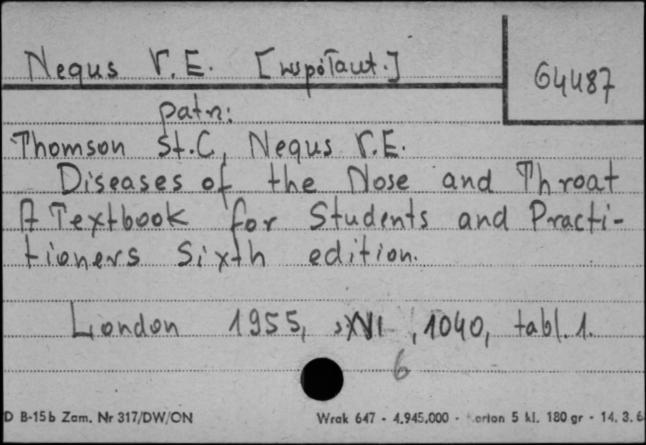 Negus V.E. [współaut.]
G4487
patrz:
Thomson St.C, Negus V.E.
Diseases of the Nose and Throat
A Textbook for Students and Practi-
tioners Sixth edition.
London 1955, s XVI, 1040, tabl. 1.
6
D B-15b Zam. Nr 317/DW/ON
Wrak 647 - 4.945.000 - 5 kl. 180 gr - 14. 3. 6